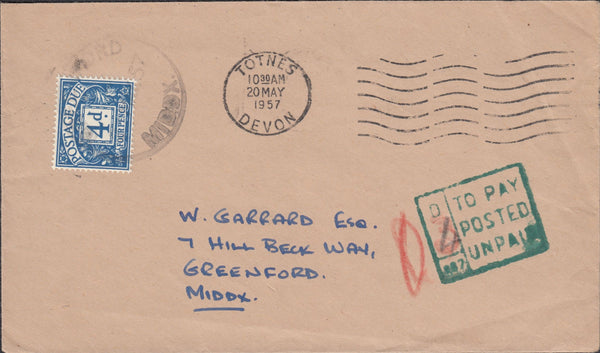 TOTNES
10 30 AM
20 MAY
1957
DEVON
MIDDX
POSTAGE DUE
4d
FOUR PENCE
W. GARRARD ESQ.
7 HILL BECK WAY,
GREENFORD.
MIDDX.
D
4
TO PAY
POSTED
UNPAID